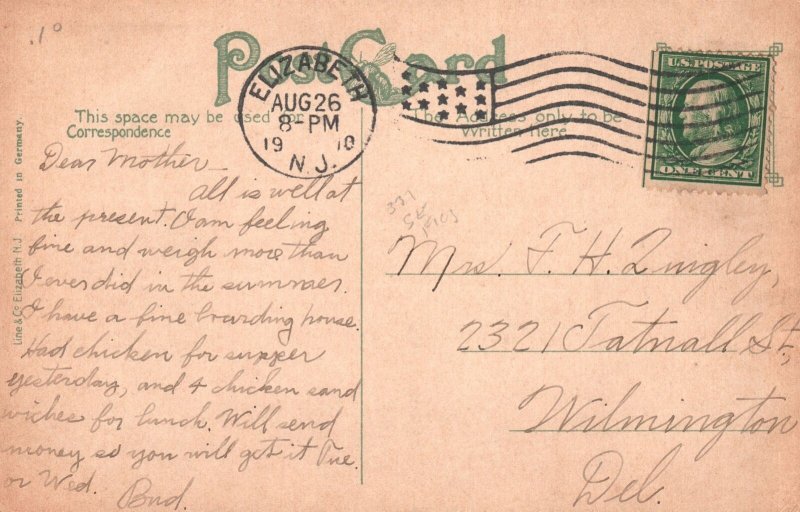 .1⁰
Post Card
ELIZABETH
AUG 26
8-PM
19 10
N.J.
U.S. POSTAGE
ONE CENT
This space may be used for
Correspondence
The Address only to be
Written here
Line & Co Elizabeth N.J Printed in Germany.
Dear Mother –
All is well at
the present. I am feeling
fine and weigh more than
I ever did in the summer.
I have a fine boarding house.
Had chicken for supper
yesterday, and 4 chicken sand
wiches for lunch. Will send
money so you will get it Tue.
or Wed.
Bud.
331
Mrs. F. H. Quigley,
2321 Tatnall St,
Wilmington
Del.